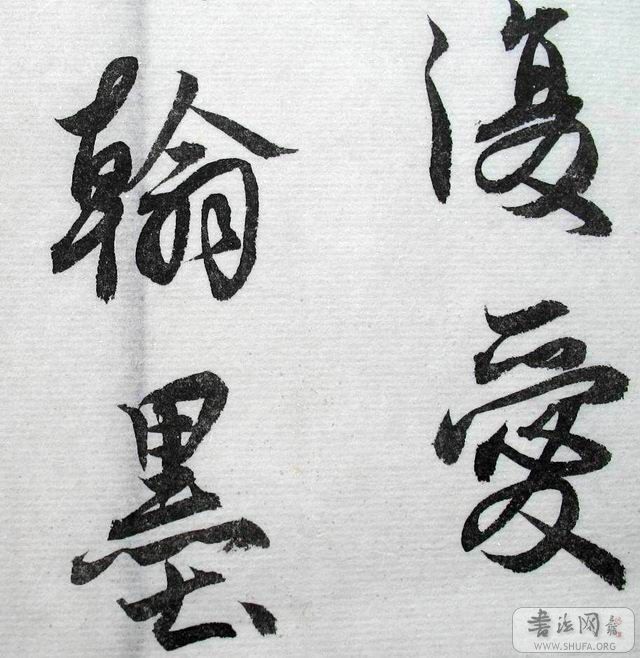 復愛
翰墨
书法网
WWW.SHUFA.ORG